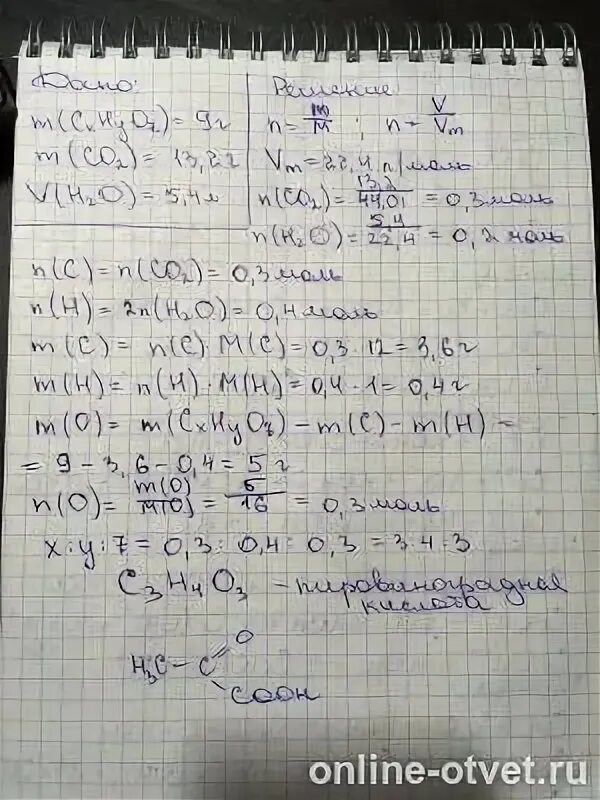 Дано:
m(CxHyOz) = 9г
m(CO₂) = 13,2г
V(H₂O) = 5,4л
Решение
n = m/M ; n = V/Vm
Vm = 22,4 л/моль
n(CO₂) = 13,2/44,01 = 0,3 моль
n(H₂O) = 5,4/22,4 = 0,2 моль
n(C) = n(CO₂) = 0,3 моль
n(H) = 2n(H₂O) = 0,4 моль
m(C) = n(C)·M(C) = 0,3·12 = 3,6г
m(H) = n(H)·M(H) = 0,4·1 = 0,4г
m(O) = m(CxHyOz) – m(C) – m(H) =
= 9 – 3,6 – 0,4 = 5 г
n(O) = m(O)/M(O) = 5/16 = 0,3 моль
x:y:z = 0,3:0,4:0,3 = 3:4:3
C₃H₄O₃ – пировиноградная
кислота
H₃C – C = O
COOH
online-otvet.ru